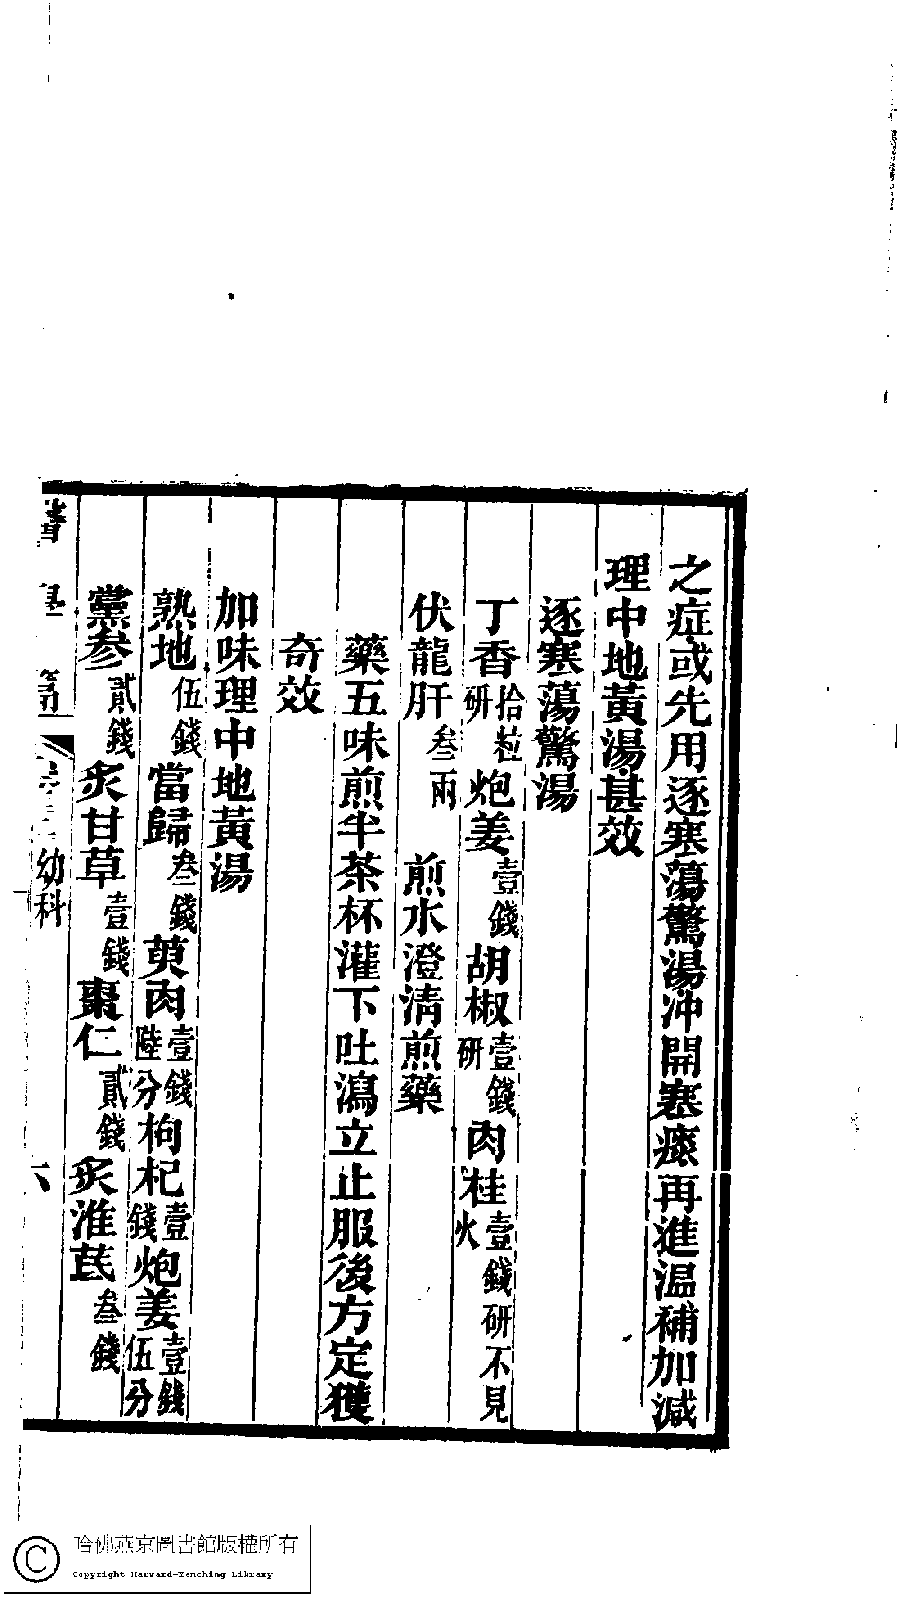 之症或先用逐寒蕩驚湯冲開寒痰再進温補加減
理中地黃湯甚效
逐寒蕩驚湯
丁香拾粒研炮姜壹錢胡椒壹錢研肉桂壹錢研不見火
伏龍肝叁兩 煎水澄清煎藥
藥五味煎半茶杯灌下吐瀉立止服後方定獲
奇效
加味理中地黃湯
熟地伍錢當歸叁錢萸肉壹錢陸分枸杞壹錢炮姜壹錢伍分
黨參貳錢炙甘草壹錢棗仁貳錢炙淮芪叁錢
幼科 六
哈佛燕京圖書館版權所有
Copyright Harvard-Yenching Library